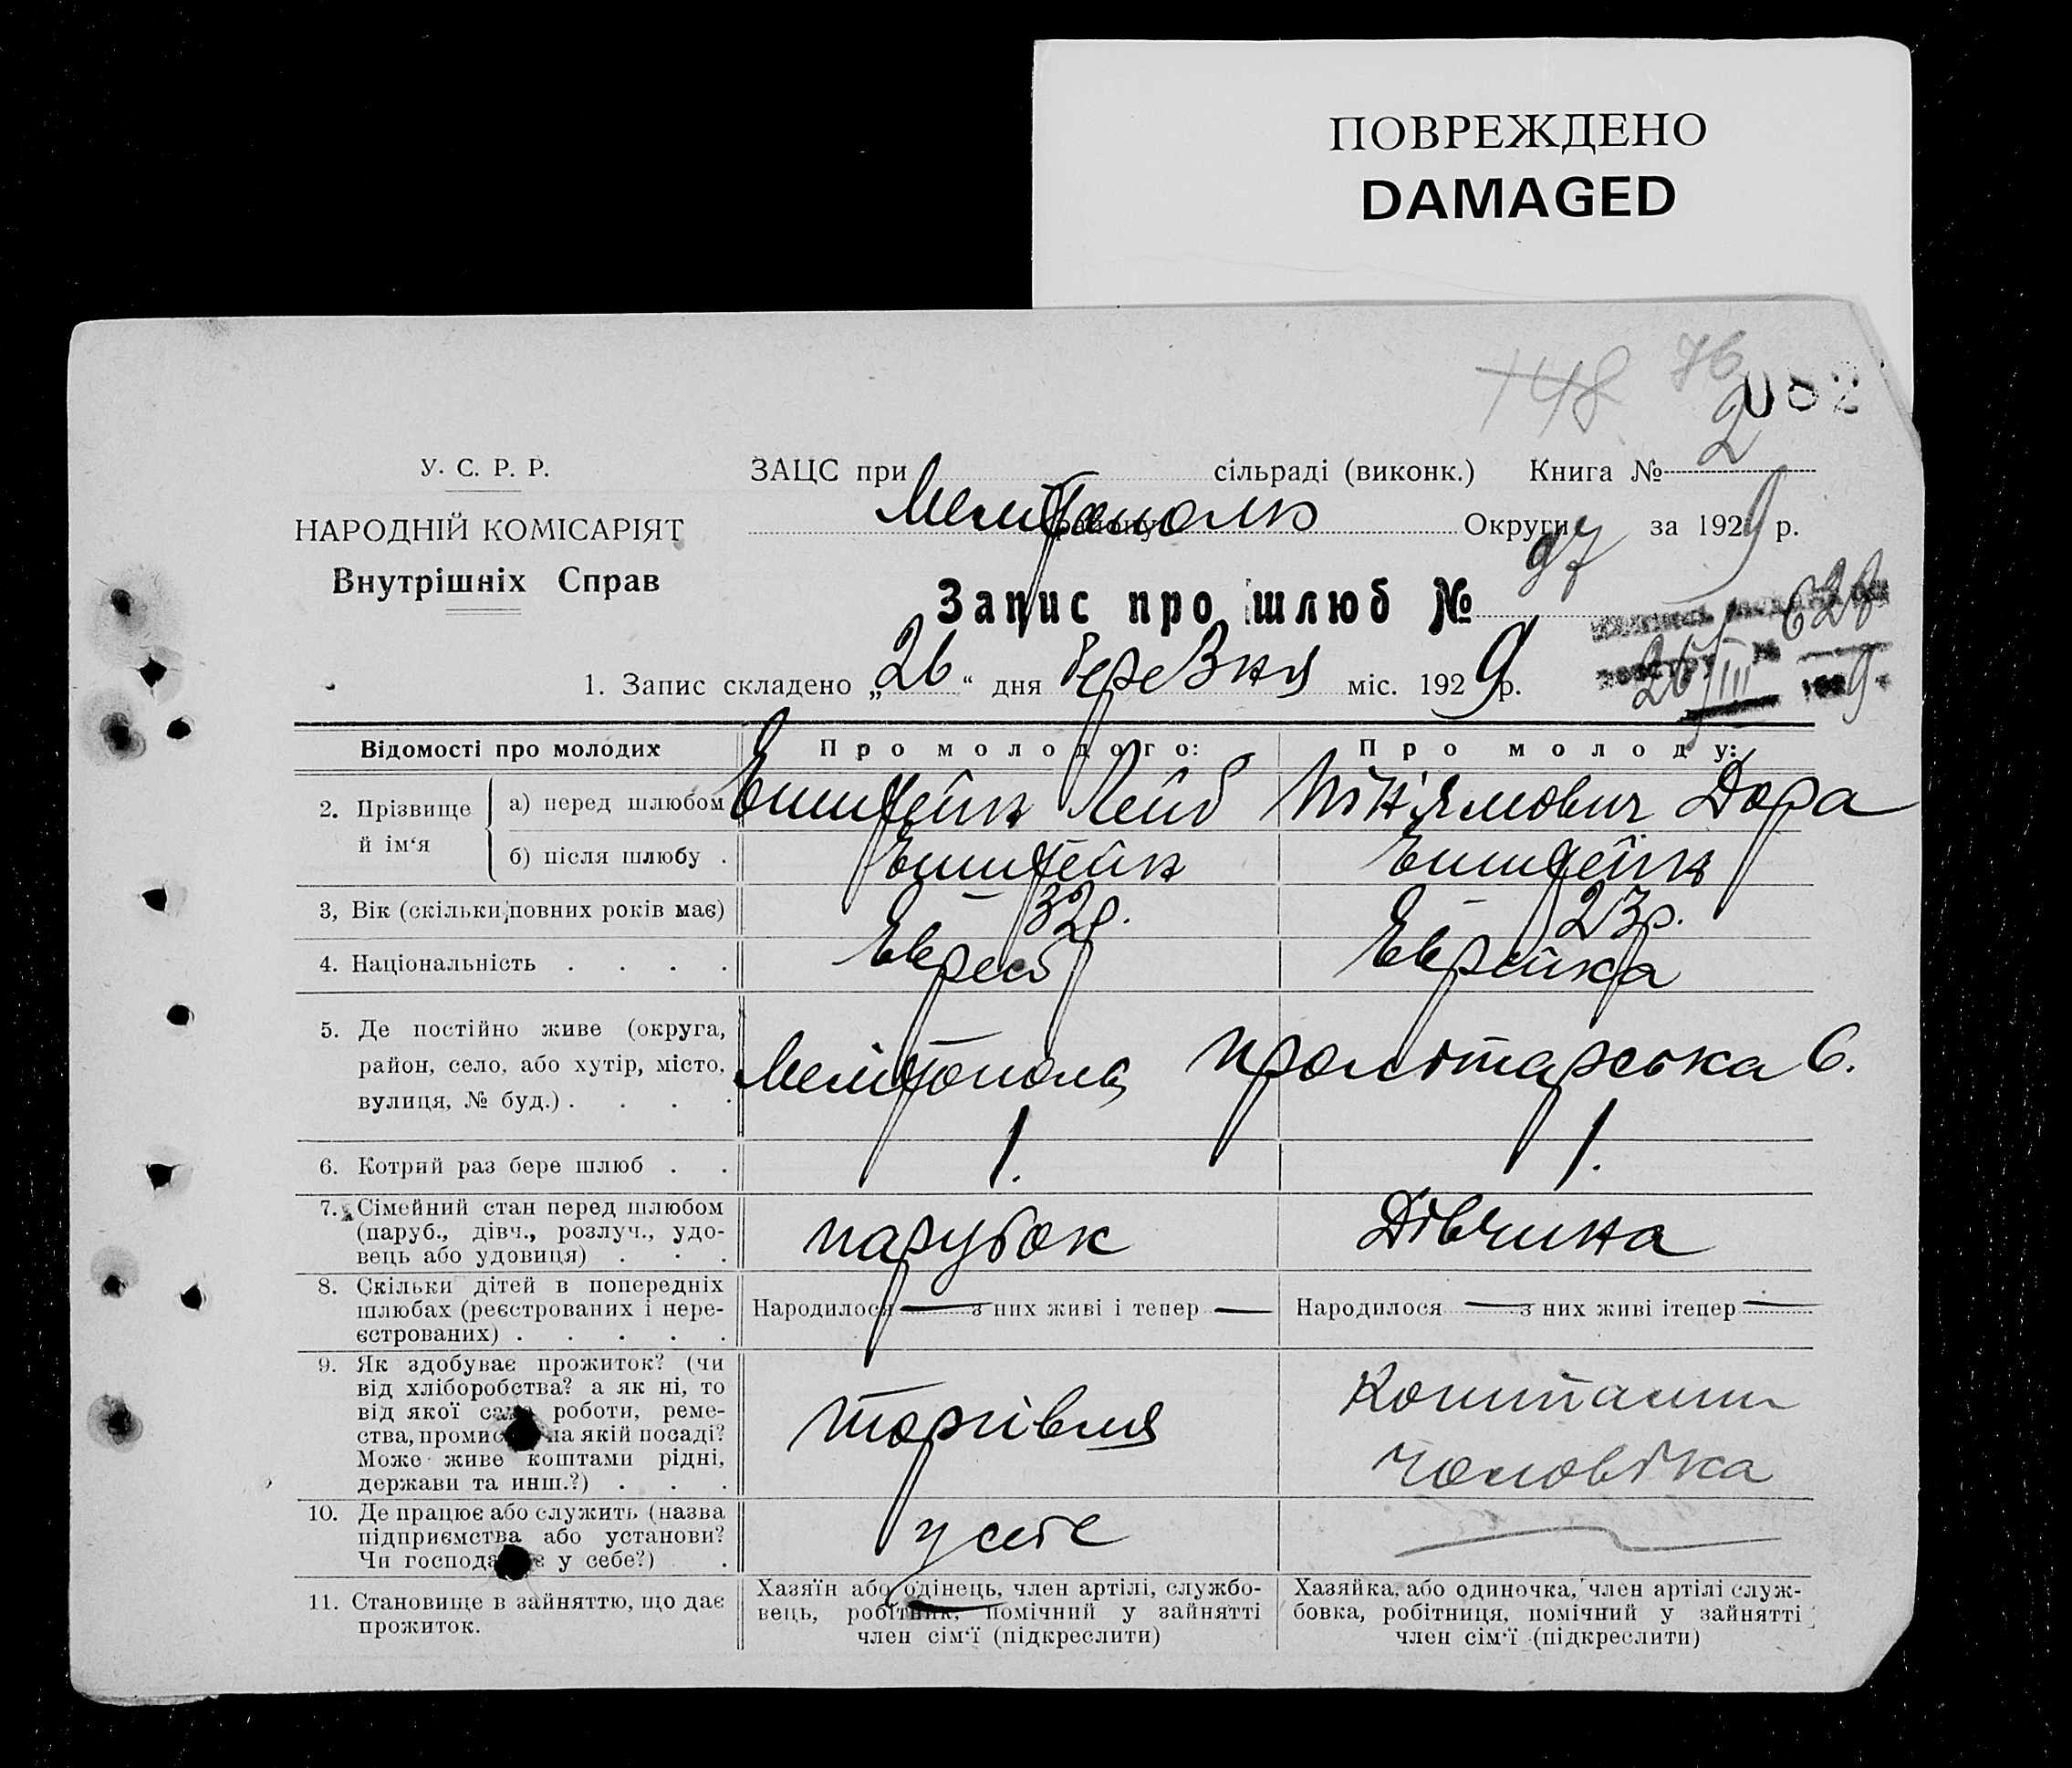 ПОВРЕЖДЕНО
DAMAGED
148 76
082
У. С. Р. Р.
НАРОДНІЙ КОМІСАРІЯТ
Внутрішніх Справ
ЗАЦС при сільраді (виконк.) Книга № 2
Мелітополь району Округи за 1929 р.
Запис про шлюб № 97
628
26/III 1929.
1. Запис складено „26“ дня березня міс. 1929 р.
Відомості про молодих Про молодого: Про молоду:
2. Прізвище й ім‘я
а) перед шлюбом Епштейн Лейб Дора
б) після шлюбу . Епштейн Епштейн
3, Вік (скільки повних років має) 32р. 23р.
4. Національність . . . . Еврей Еврейка
5. Де постійно живе (округа,
район, село, або хутір, місто,
вулиця, № буд.) . . . . Мелітополь Пролетарська 6.
6. Котрий раз бере шлюб . . 1. 1.
7. Сімейний стан перед шлюбом
(паруб., дівч., розлуч., удо-
вець або удовиця) . . . парубок Дівчина
8. Скільки дітей в попередніх
шлюбах (реєстрованих і нере-
єстрованих) . . . . . Народилося — з них живі і тепер — Народилося — з них живі ітепер —
9. Як здобуває прожиток? (чи
від хліборобства? а як ні, то
від якої роботи, реме-
ства, на якій посаді?
Може живе коштами рідні,
держави та инш.?) . . . торгівля Коштами
чоловіка
10. Де працює або служить (назва
підприємства або установи?
Чи у себе?) . у себе —
11. Становище в зайняттю, що дає
прожиток.
Хазяїн або одінець, член артілі, службо-
вець, робітник, помічний у зайнятті
член сім‘ї (підкреслити)
Хазяйка, або одиночка, член артілі служ-
бовка, робітниця, помічний у зайнятті
член сім‘ї (підкреслити)